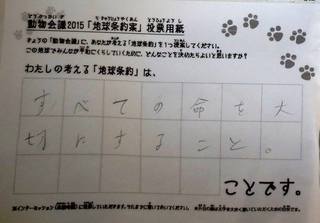 動物会議2015「地球条約案」投票用紙
きょうの「動物会議」に、あなたが考える「地球条約」を1つ提案してください。
この地球でみんなが平和にくらしていくために、どんなことを決めたらよいと思いますか?
わたしの考える「地球条約」は、
すべての命を大
切にすること。
ことです。